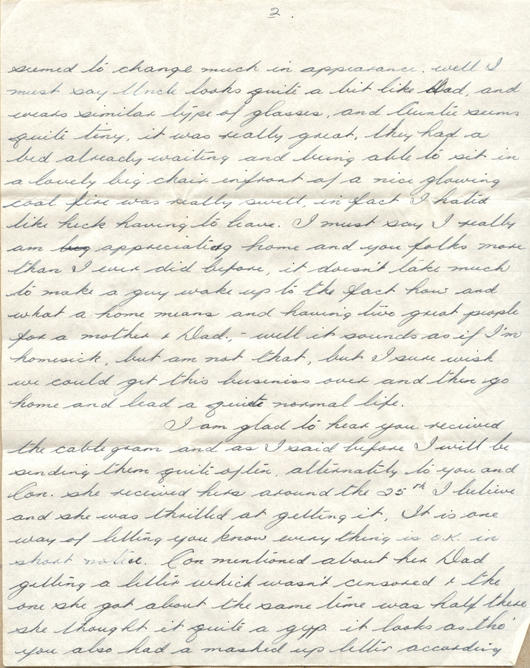 2.
seemed to change much in appearance, well I
must say Uncle looks quite a bit like Dad, and
wears similar type of glasses, and Auntie seems
quite tiny, it was really great, they had a
bed already waiting and being able to sit in
a lovely big chair infront of a nice glowing
coal fire was really swell, in fact I hated
like heck having to leave. I must say I really
am appreciating home and you folks more
than I ever did before, it doesn't take much
to make a guy wake up to the fact how and
what a home means and having two great people
for a mother & Dad, - well it sounds as if I'm
homesick, but am not that, but I sure wish
we could get this business over and then go
home and lead a quite normal life.
I am glad to hear you received
the cablegram and as I said before I will be
sending them quite often, alternately to you and
Con. she received hers around the 25th I believe
and she was thrilled at getting it, It is one
way of letting you know everything is o.k. in
short notice. Con mentioned about her Dad
getting a letter which wasn't censored & the
one she got about the same time was half there
she thought it quite a gyp. it looks as tho'
you also had a mashed up letter according